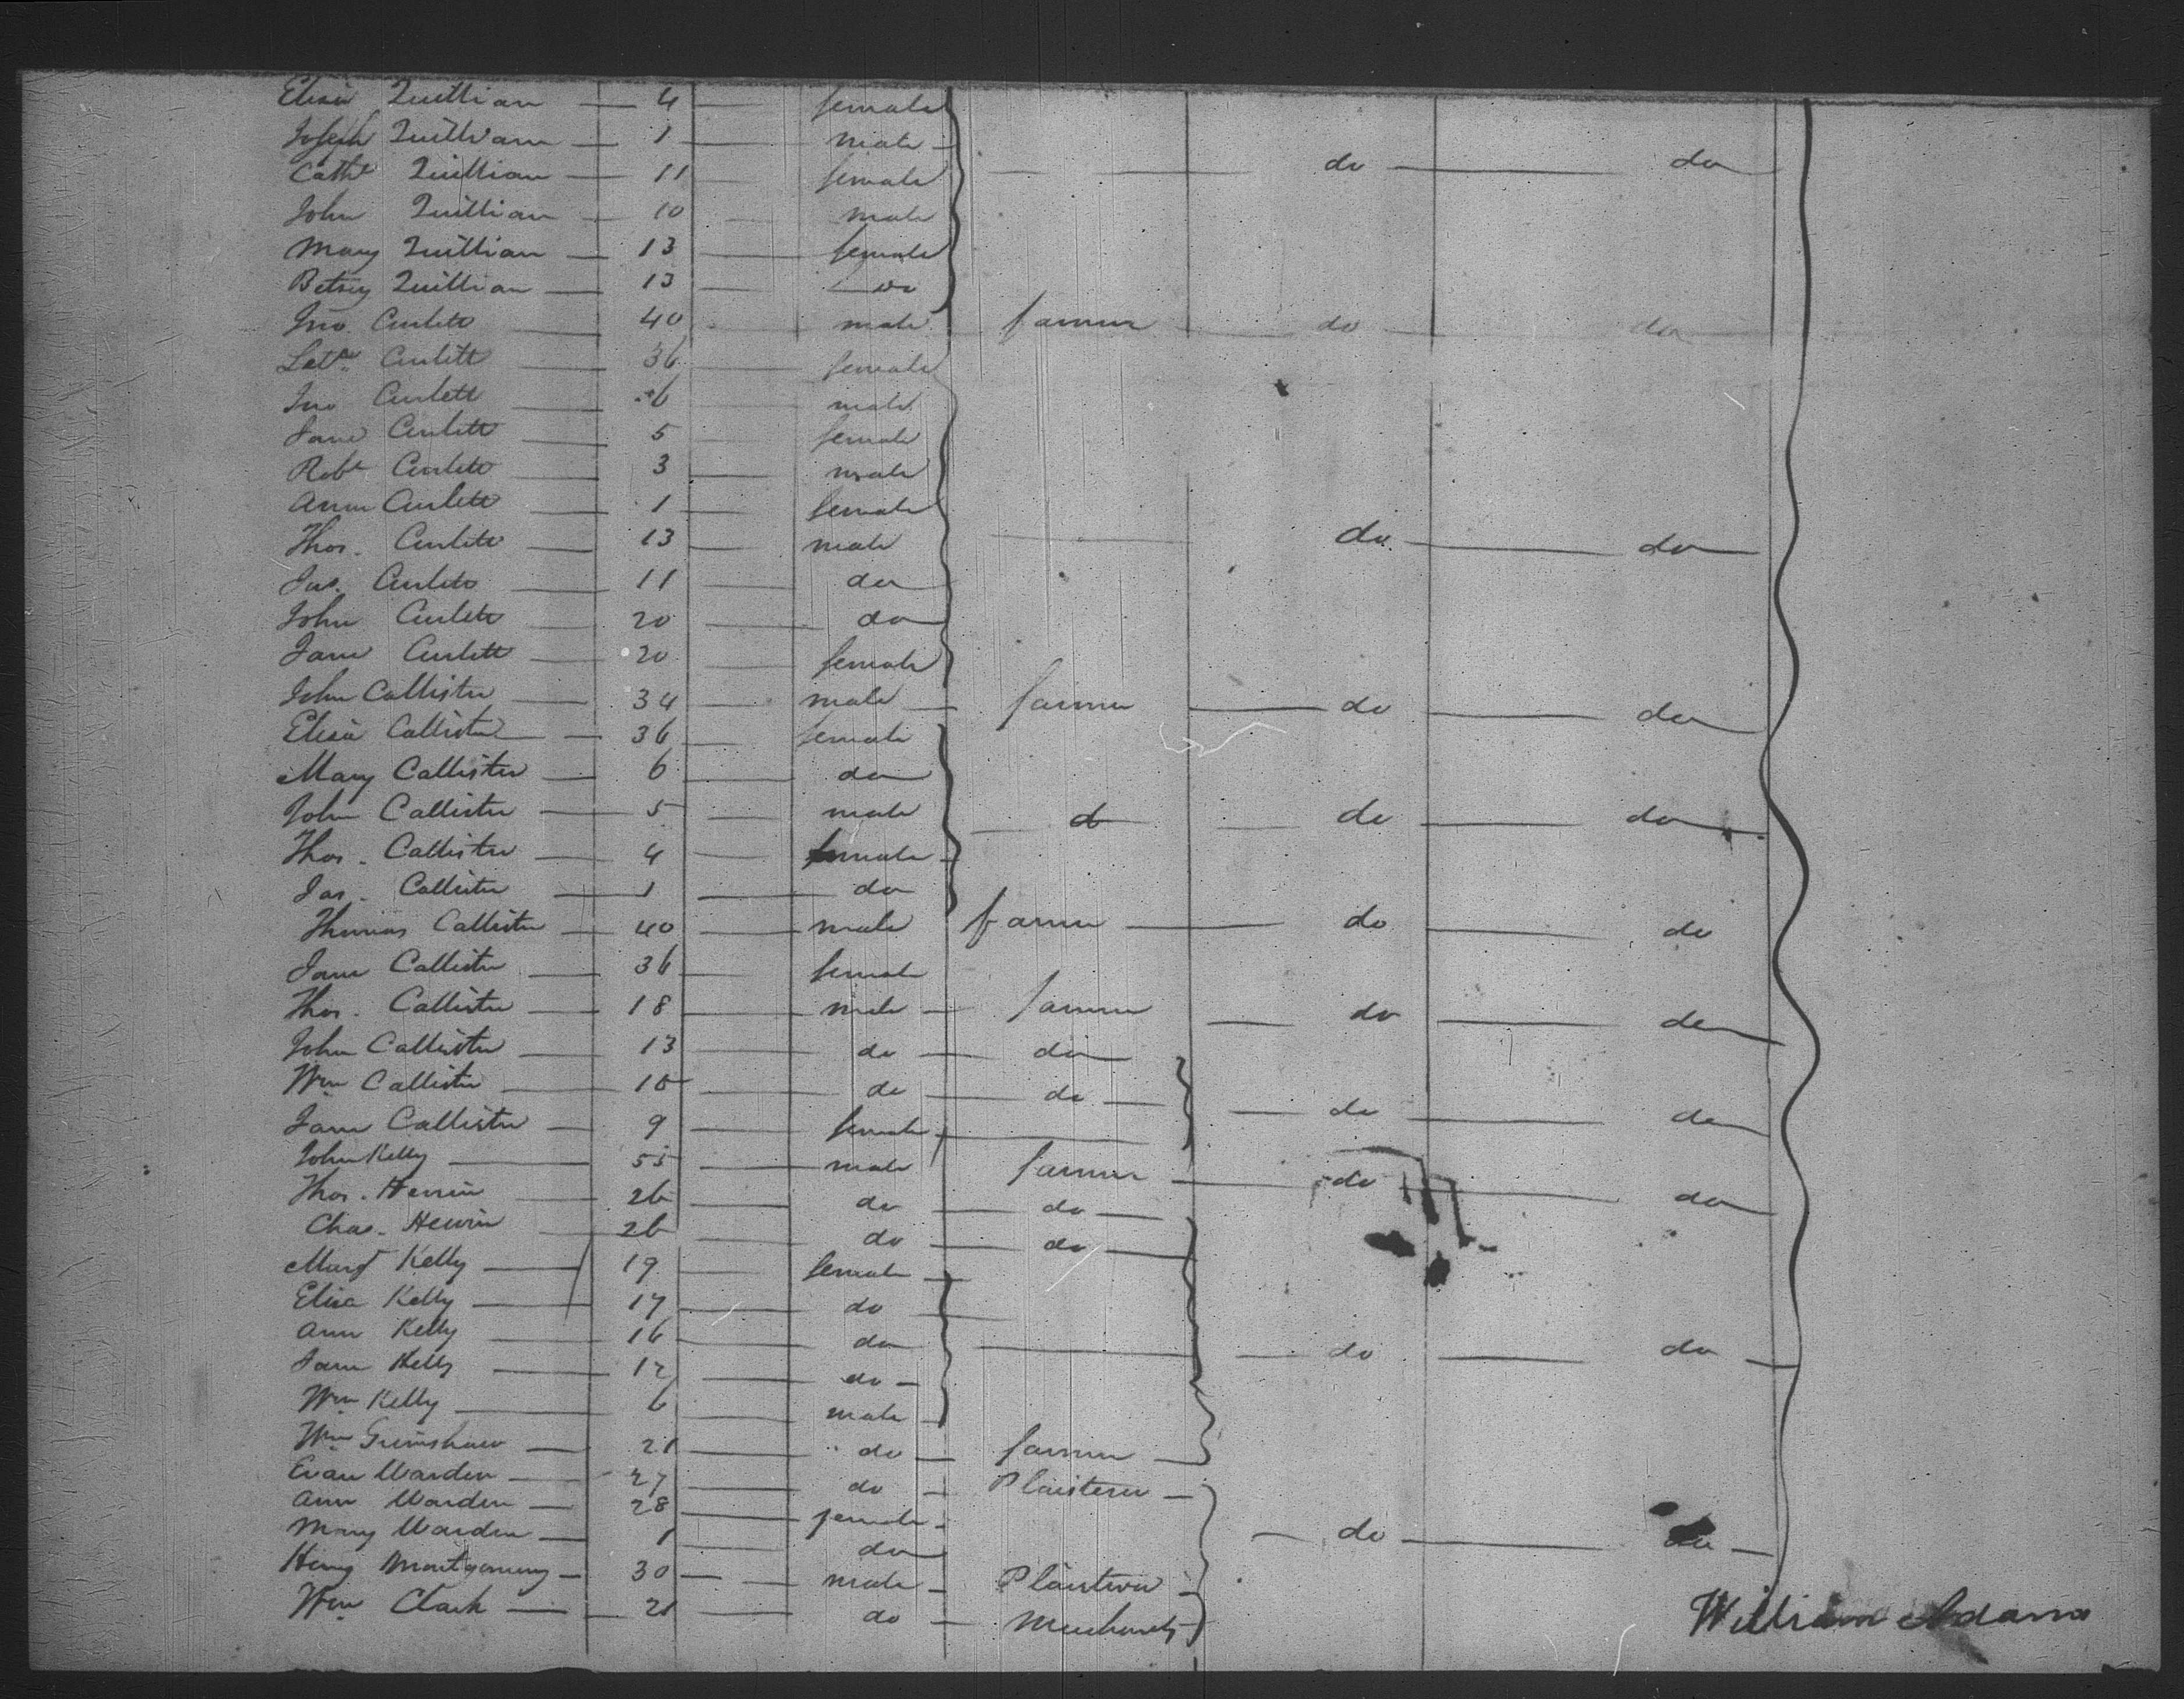 Eliza Quillian — 4 — female
Joseph Quillian — 1 — male
Cathe Quillian — 11 — female — do — do
John Quillian — 10 — male
Mary Quillian — 13 — female
Betsey Quillian — 13 — do
Jno. Curlett — 40 — male farmer — do — do
Lett. Curlett — 36 — female
Jno Curlett — 6 — male
Jane Curlett — 5 — female
Robt Curlett — 3 — male
Ann Curlett — 1 — female
Thos. Curlett — 13 — male — do — do
Jas. Curlett — 11 — do
John Curlett — 20 — do
Jane Curlett — 20 — female
John Callister — 34 — male — farmer — do — do
Eliza Callister — 36 — female
Mary Callister — 6 — do
John Callister — 5 — male — do — do — do
Thos. Callister — 4 — female
Jas. Callister — 1 — do
Thomas Callister — 40 — male farmer — do — do
Jane Callister — 36 — female
Thos. Callister — 18 — male — farmer — do — do
John Callister — 13 — do — do
Wm Callister — 15 — do — do — do — do
Jane Callister — 9 — female
John Kelly — 55 — male farmer — do — do
Thos. Herrin — 26 — do — do
Chas. Herrin — 26 — do — do
Margt Kelly — 19 — female
Eliza Kelly — 17 — do
Ann Kelly — 16 — do — do — do
Jane Kelly — 12 — do
Wm Kelly — 6 — male
Wm Grimshaw — 21 — do — farmer
Evan Warden — 27 — do — Plaisterer
Ann Warden — 28 — female
Mary Warden — 1 — do — do — do
Henry Montgomery — 30 — male — Plaisterer
Wm Clark — 21 — do —
William Adams